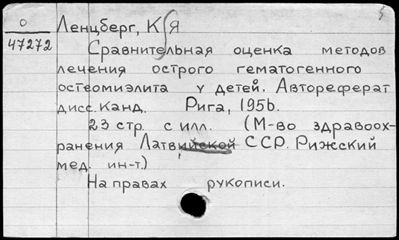 О
47272
Ленцберг, К Я
Сравнительная оценка методов
лечения острого гематогенного
остеомиэлита у детей. Автореферат
дисс. канд. Рига, 1956.
23 стр. с илл. (М-во здравоох-
ранения Латвийской ССР. Рижский
мед. ин-т.)
На правах рукописи.